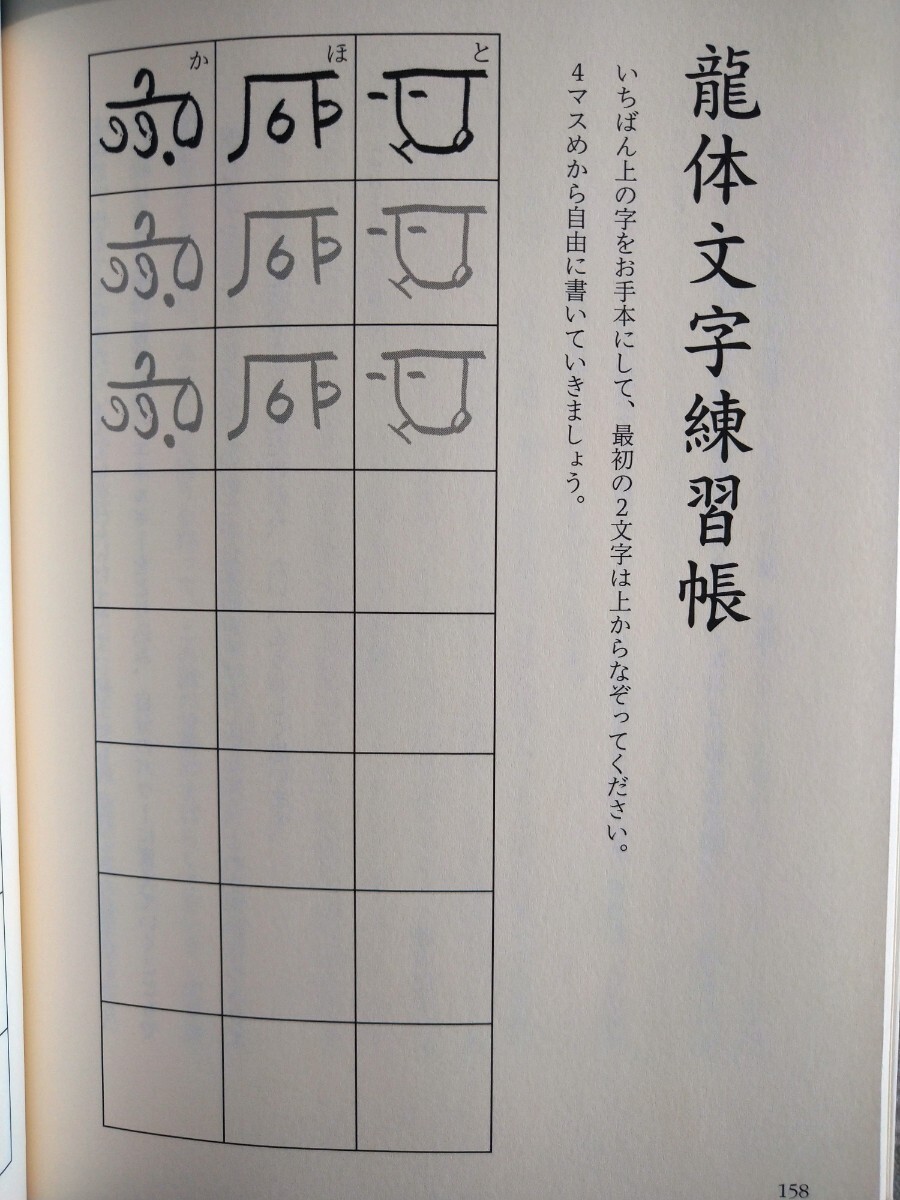 龍体文字練習帳
いちばん上の字をお手本にして、最初の2文字は上からなぞってください。
4マスめから自由に書いていきましょう。
と
ほ
か
158